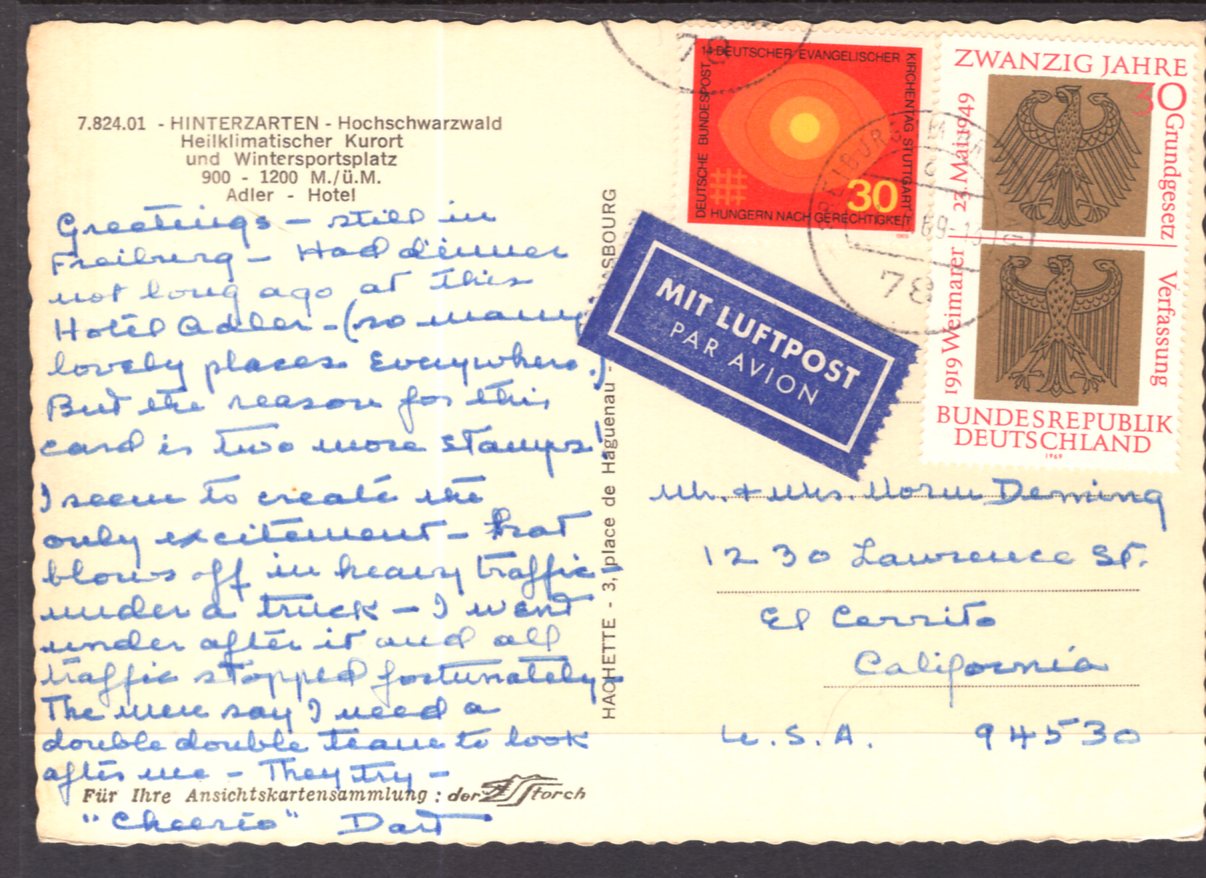 7.824.01 - HINTERZARTEN - Hochschwarzwald
Heilklimatischer Kurort
und Wintersportsplatz
900 - 1200 M./ü.M.
Adler - Hotel
Greetings - still in
Freiburg - Had dinner
not long ago at this
Hotel Adler - (so many
lovely places everywhere.)
But the reason for this
card is two more stamps!
I seem to create the
only excitement - hat
blows off in heavy traffic -
under a truck - I went
under after it and all
traffic stopped fortunately -
The men say I need a
double double team to look
after me - They try -
Für Ihre Ansichtskartensammlung : der Storch
"Cheerio" Dart
HACHETTE - 3, place de Haguenau - ASBOURG
78
14. DEUTSCHER EVANGELISCHER
KIRCHENTAG STUTTGART
HUNGERN NACH GERECHTIGKEIT
DEUTSCHE BUNDESPOST
30
1969
ZWANZIG JAHRE
30
Grundgesetz
23. Mai 1949
1919 Weimarer
Verfassung
BUNDESREPUBLIK
DEUTSCHLAND
1969
69-1
78
MIT LUFTPOST
PAR AVION
Mr. & Mrs. Norm Deming
1230 Lawrence St.
El Cerrito
California
U.S.A. 94530